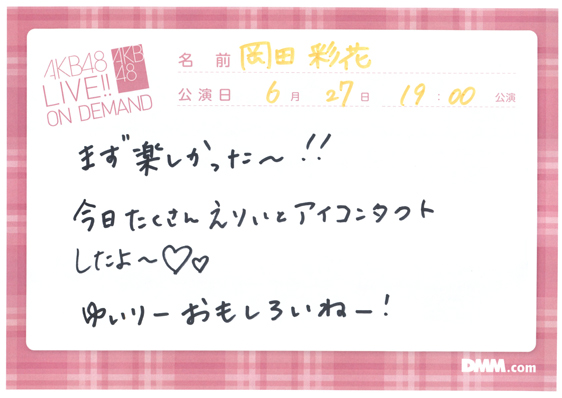 AKB48
LIVE!!
ON DEMAND
AKB
48
名前 岡田彩花
公演日 6月 27日 19:00 公演
まず楽しかった〜!!
今日たくさんえりぃとアイコンタクト
したよ〜♡♡
ゆいりーおもしろいねー!
DMM.com